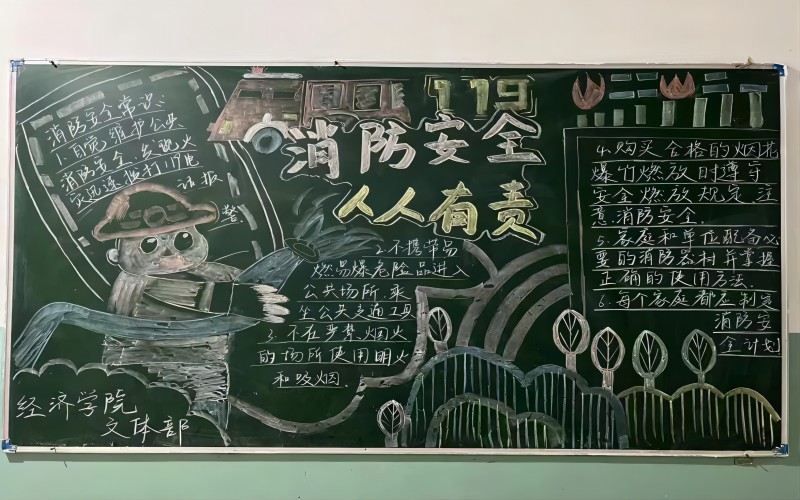 119
消防安全
人人有责
消防安全常识
1.自觉维护公共
消防安全,发现火
灾迅速拨打119电
话报
警.
2.不携带易
燃易爆危险品进入
公共场所、乘
坐公共交通工具
3.不在严禁烟火
的场所使用明火
和吸烟.
4.购买合格的烟花
爆竹燃放时遵守
安全燃放规定,注
意消防安全.
5.家庭和单位配备必
要的消防器材并掌握
正确的使用方法.
6.每个家庭都应制定
消防安
全计划
经济学院
文体部